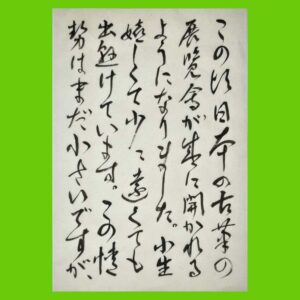 この頃日本の古筆の
展覧會が盛に開かれる
ようになりました。小生
嬉しくて少々遠くても
出懸けています。この情
勢はまだ小さいですが、